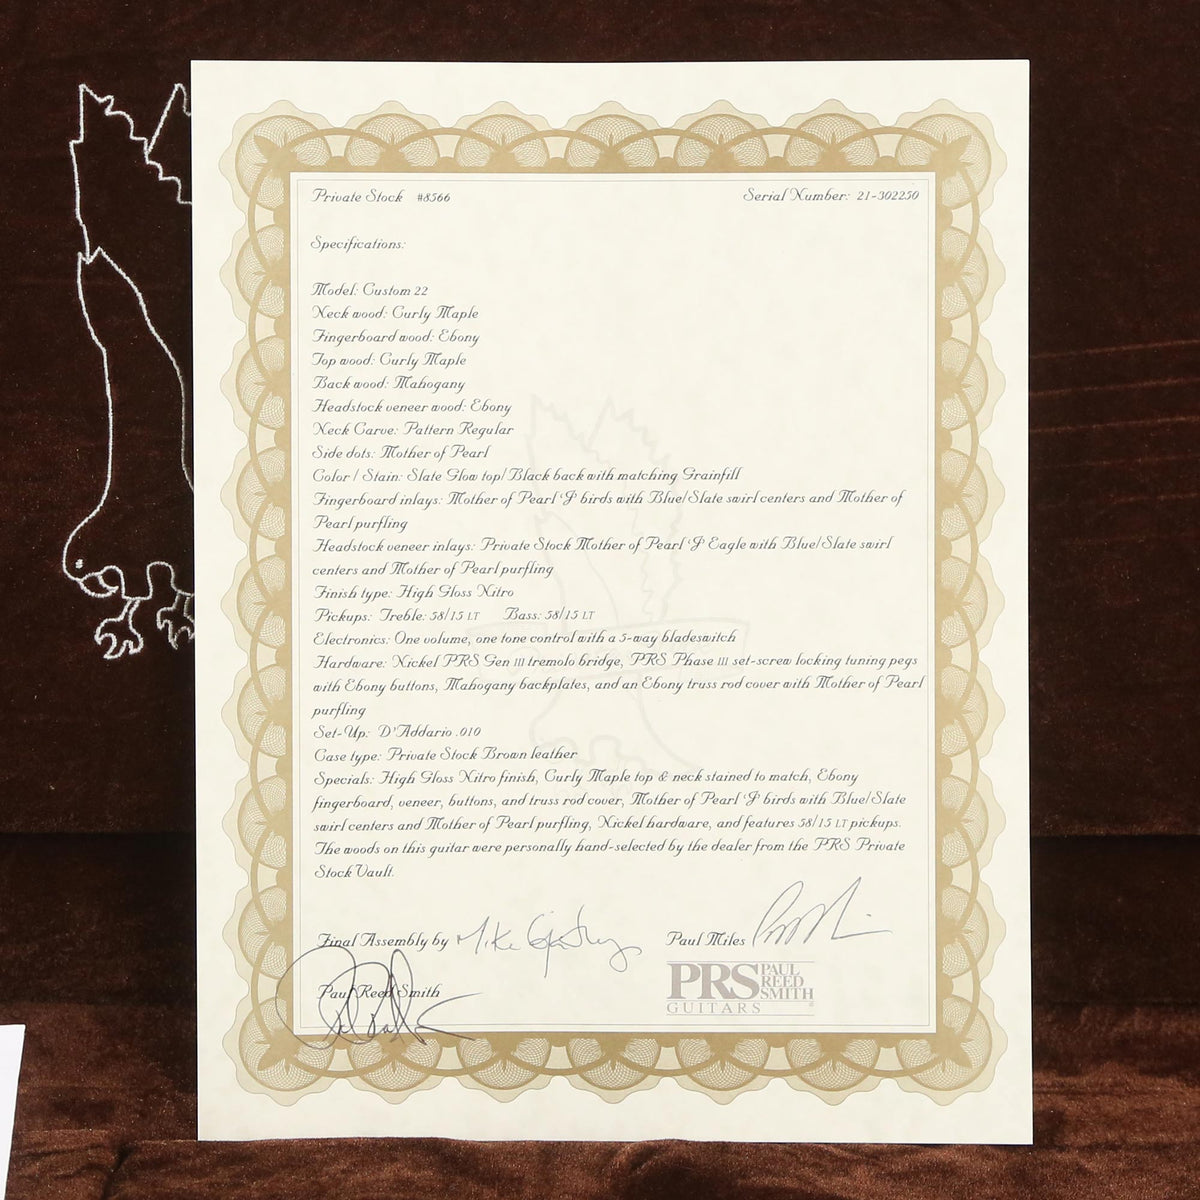 Private Stock #8566 Serial Number: 21-302250
Specifications:
Model: Custom 22
Neck wood: Curly Maple
Fingerboard wood: Ebony
Top wood: Curly Maple
Back wood: Mahogany
Headstock veneer wood: Ebony
Neck Carve: Pattern Regular
Side dots: Mother of Pearl
Color / Stain: Slate Glow top/ Black back with matching Grainfill
Fingerboard inlays: Mother of Pearl 'J' birds with Blue/Slate swirl centers and Mother of
Pearl purfling
Headstock veneer inlays: Private Stock Mother of Pearl 'J' Eagle with Blue/Slate swirl
centers and Mother of Pearl purfling
Finish type: High Gloss Nitro
Pickups: Treble: 58/15 LT Bass: 58/15 LT
Electronics: One volume, one tone control with a 5-way bladeswitch
Hardware: Nickel PRS Gen III tremolo bridge, PRS Phase III set-screw locking tuning pegs
with Ebony buttons, Mahogany backplates, and an Ebony truss rod cover with Mother of Pearl
purfling
Set-Up: D'Addario .010
Case type: Private Stock Brown leather
Specials: High Gloss Nitro finish, Curly Maple top & neck stained to match, Ebony
fingerboard, veneer, buttons, and truss rod cover, Mother of Pearl 'J' birds with Blue/Slate
swirl centers and Mother of Pearl purfling, Nickel hardware, and features 58/15 LT pickups.
The woods on this guitar were personally hand-selected by the dealer from the PRS Private
Stock Vault.
Final Assembly by Mike Paul Miles
Paul Reed Smith
PRS PAUL REED SMITH
GUITARS